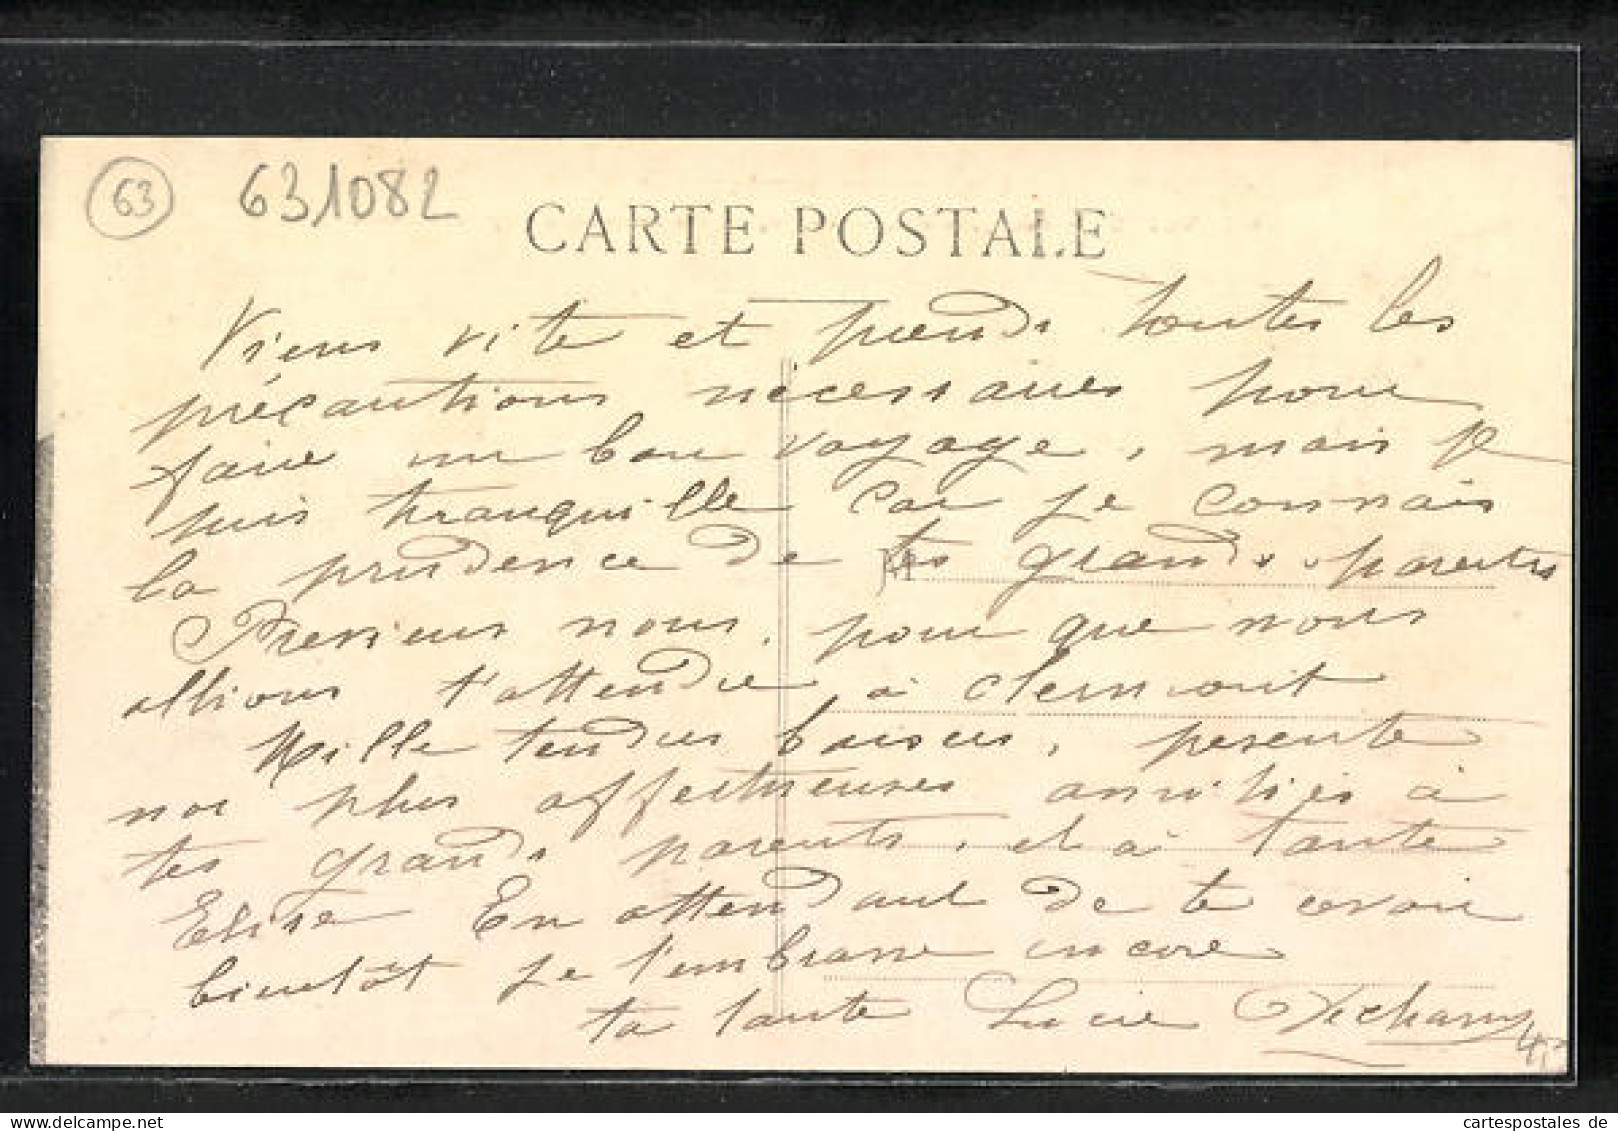 63
631082
CARTE POSTALE
Viens vite et prends toutes les
précautions nécessaires pour
faire un bon voyage, mais je
suis tranquille car je connais
la prudence de tes grands parents
Previens nous, pour que nous
allions t'attendre à Clermont
Mille tendres baisers, présente
nos plus affectueuses amitiés à
tes grands parents, et à tante
Elise En attendant de te revoir
bientôt je t'embrasse encore
ta tante Lucie Dechamp
cartespostales de